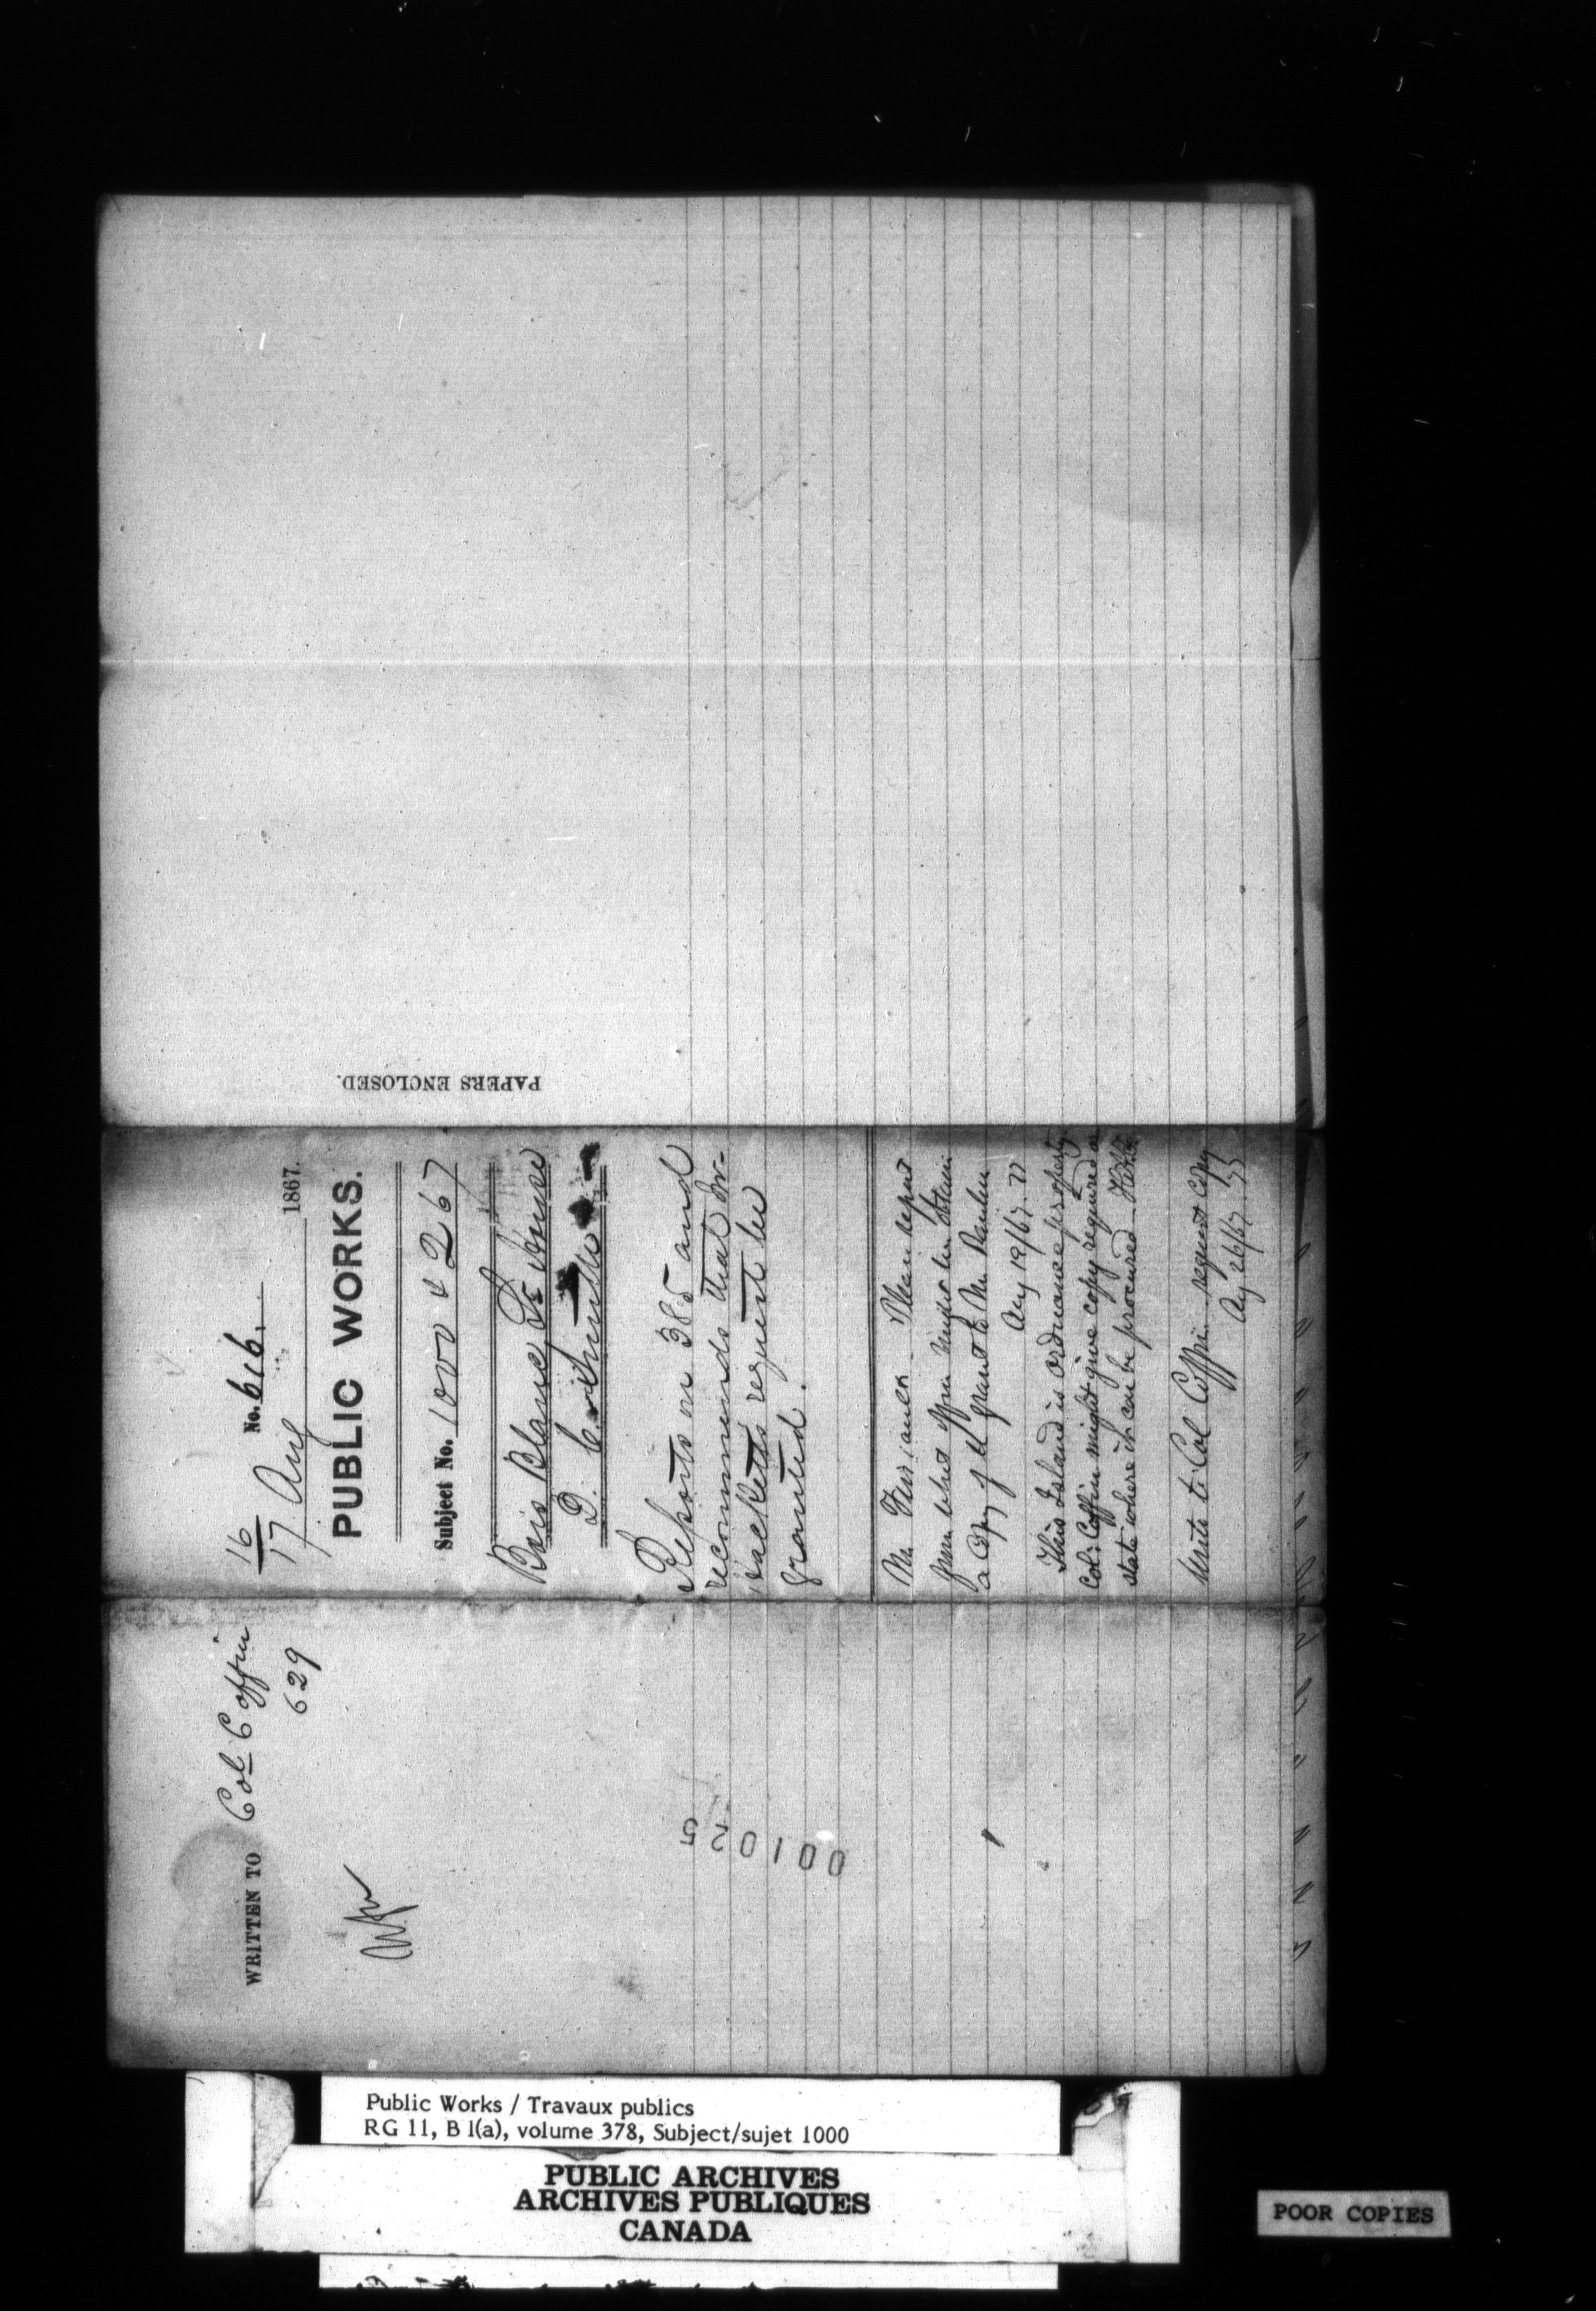 WRITTEN TO Col Coffin
629
001025
16 No. 616.
17 Aug 1867.
PUBLIC WORKS.
Subject No. 1000 & 267
Bois Blanc
D.
Reports on 385 and
recommends that Dr-
request be
granted.
Mr - Please report
from what office
a copy of the grant to Mr Rankin
Aug 19/67.
This Island is ordnance property
Col: Coffin might give copy required or
state where it can be procured.
Write to Col Coffin - request copy
Aug 26/67.
PAPERS ENCLOSED.
Public Works / Travaux publics
RG 11, B 1(a), volume 378, Subject/sujet 1000
PUBLIC ARCHIVES
ARCHIVES PUBLIQUES
CANADA
POOR COPIES